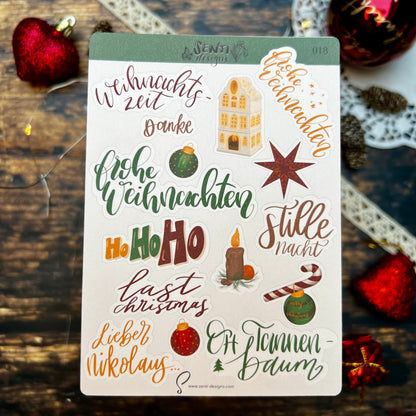 SENTI
designs
018
Weihnachts-
zeit
Danke
frohe
Weihnachten
frohe
Weihnachten
HoHoHo
Stille
nacht
last
christmas
Lieber
Nikolaus...
OH Tannen-
baum
www.senti-designs.com